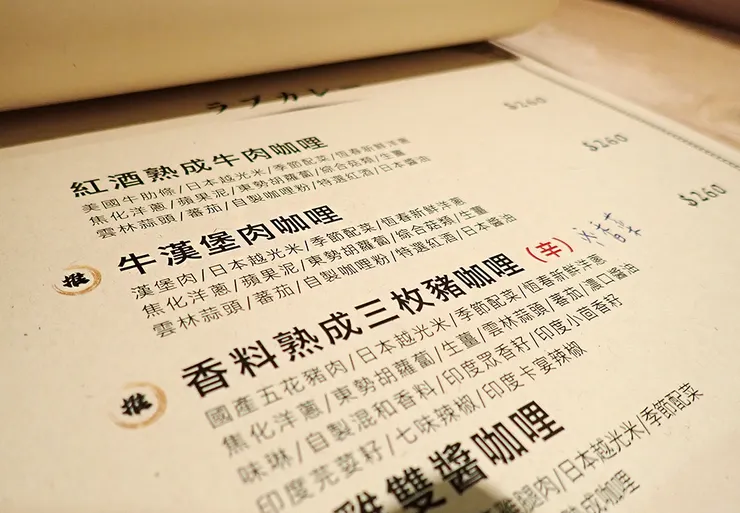 ラブカレー
紅酒熟成牛肉咖哩 $260
美國牛肋條/日本越光米/季節配菜/恆春新鮮洋蔥
焦化洋蔥/蘋果泥/東勢胡蘿蔔/綜合菇類/生薑
雲林蒜頭/蕃茄/自製咖哩粉/特選紅酒/日本醬油
推 牛漢堡肉咖哩 $260
漢堡肉/日本越光米/季節配菜/恆春新鮮洋蔥
焦化洋蔥/蘋果泥/東勢胡蘿蔔/綜合菇類/生薑
雲林蒜頭/蕃茄/自製咖哩粉/特選紅酒/日本醬油
推 香料熟成三枚豬咖哩 (辛) $260
國產五花豬肉/日本越光米/季節配菜/恆春新鮮洋蔥
焦化洋蔥/東勢胡蘿蔔/生薑/雲林蒜頭/蕃茄/濃口醬油
味琳/自製混和香料/印度眾香籽/印度小茴香籽
印度芫荽籽/七味辣椒/印度卡宴辣椒
雞雙醬咖哩
雞腿肉/日本越光米/季節配菜